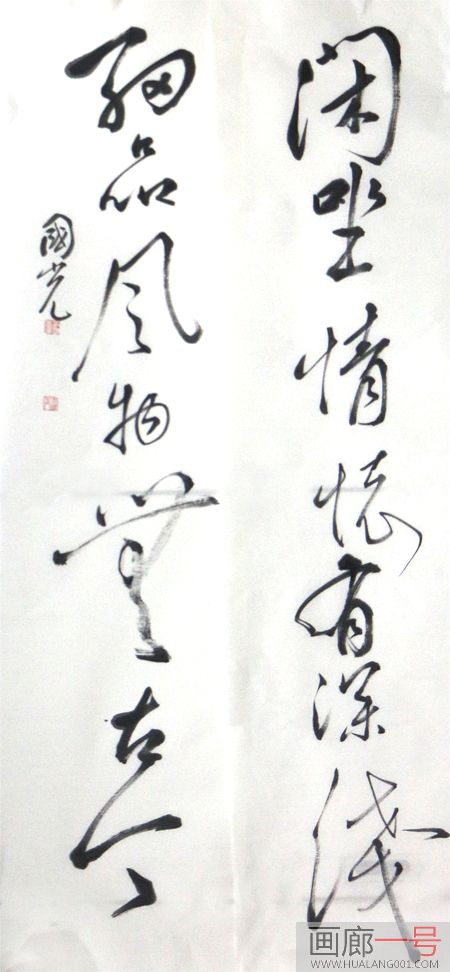 闲坐情怀有深浅
細品风物無古今
國光
画廊一号
WWW.HUALANG001.COM